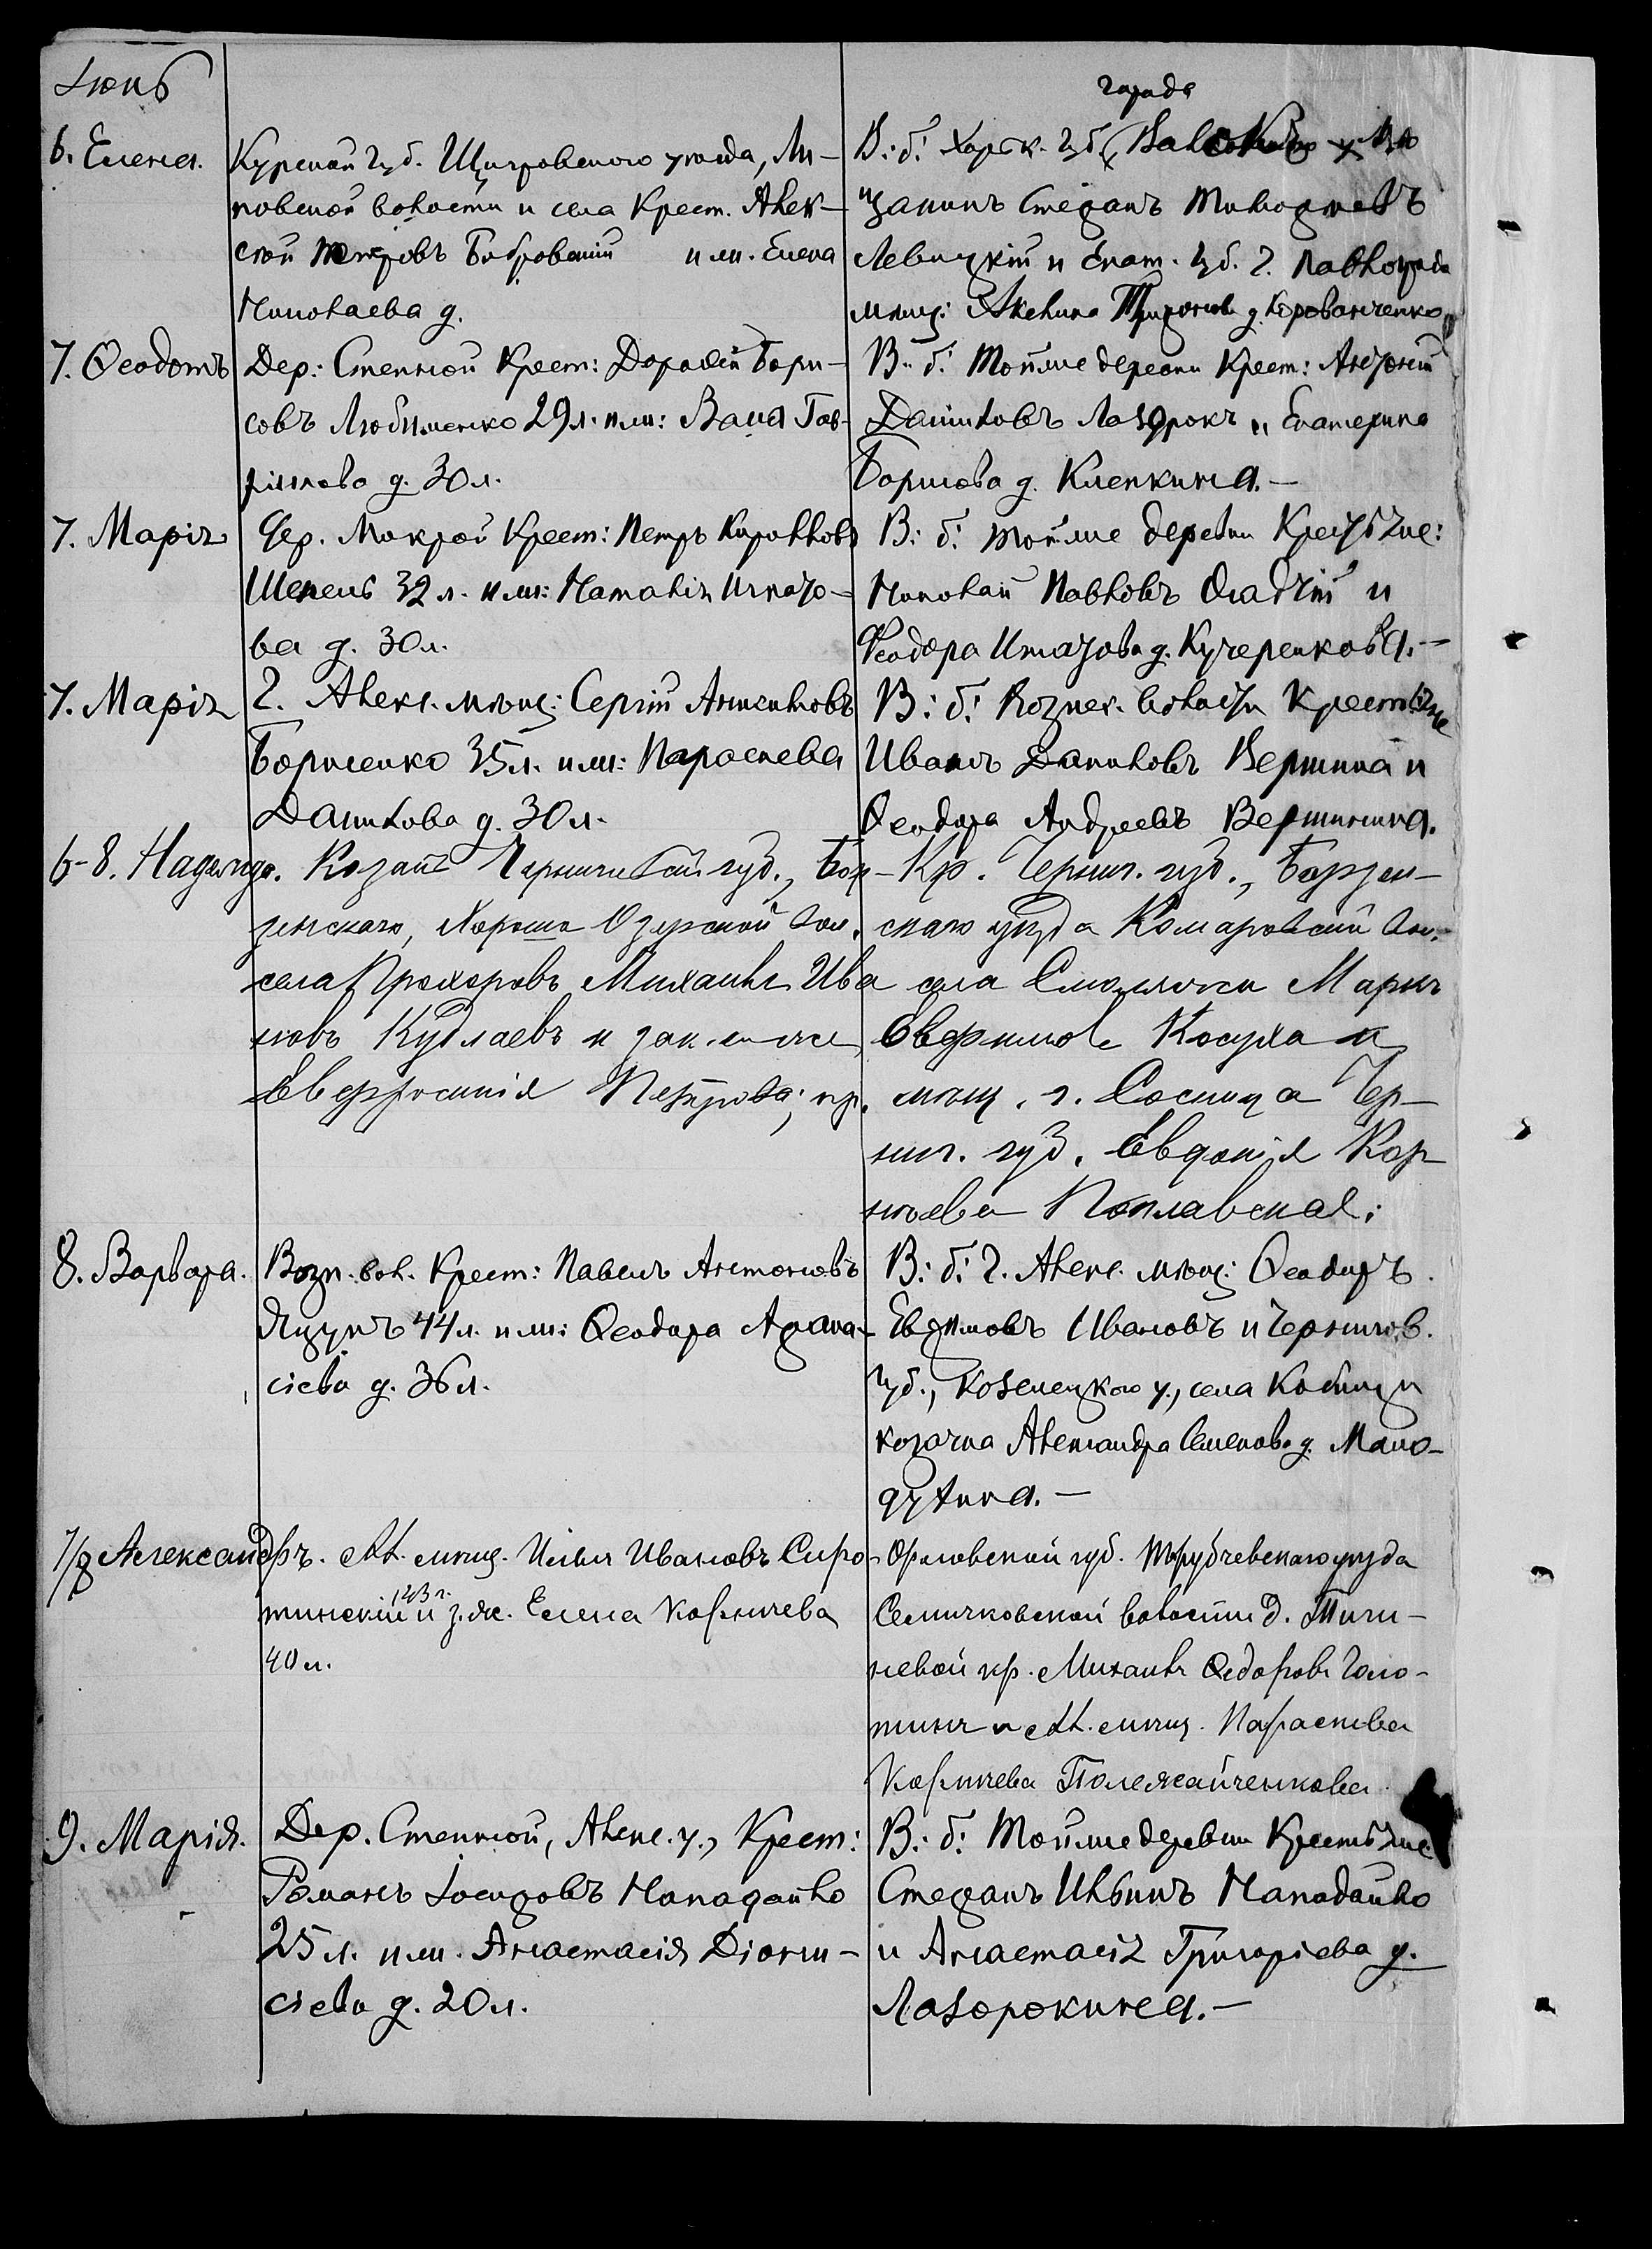 Іюнь
6. Елена.
Курской губ. Щигровского уѣзда, Ли-
повской волости и села Крест. Алек-
сѣй Петровъ Бобровскій и ж. Елена
Николаева д.
города
В: б: Харьк. губ. Валокъ мѣ
щанинъ Стефанъ Тимофеевъ
Левицкій и Екат. губ. г. Павлограда
мѣщ: Акелина д. Борованченко
7. Ѳеодотъ
Дер: Степной Крест: Дорофей Бори-
совъ Любименко 29 л. и ж: Васса Гав-
рiилова д. 30 л.
В: б: Той же деревни Крест: Андрей
Даниловъ Лазорокъ и Екатерина
Борисова д. Клепкина.—
7. Марія
Дер. Мокрой Крест: Петръ Кирилловъ
Шепель 32 л. и ж: Наталія Игнато-
ва д. 30 л.
В: б: той же деревни Крестьяне:
Николай Павловъ Оладчій и
Ѳеодора Игнатова д. Кучеренкова.—
7. Марія
г. Алекс. мѣщ: Сергій Антиповъ
Борисенко 35 л. и ж: Параскева
Данилова д. 30 л.
В: б: Вознес. волости Крестьяне
Иванъ Даниловъ Вершина и
Ѳеодора Андреевъ Вершинина.
6-8. Надежда.
Козакъ Черниговской губ., Бор-
зенскаго, Хорошо Озерской вол.
села Прохоровъ Михаилъ Ива
новъ Кудлаевъ и зак. жена
Евфросинія Петрова; пр.
Кр. Черниг. губ., Борзен-
скаго уѣзда Комаровской вол.
села Смоляжи Маркъ
Евфимовъ Косуха и
мѣщ. г. Сосница Чер-
ниг. губ. Евдокія Кор
нѣева Поплавская;
8. Варвара.
Возн. вол. Крест: Павелъ Антоновъ
Яцунъ 44 л. и ж: Ѳеодора Афана-
сіева д. 36 л.
В: б: г. Алекс. мѣщ: Ѳеодоръ
Евфимовъ Ивановъ и Чернигов.
губ., Козелецкого у., села Кобищи
козачка Александра Семенова д. Мало-
дутина.—
7/8 Александръ.
Ал. мѣщ. Илья Ивановъ Сиро-
тинскій 43 л. и з. ж. Елена Корнiева
40 л.
Орловской губ. Трубчевскаго уѣзда
Семячковской волости д. Тиги-
невой кр. Михаилъ Ѳедоровъ Голо-
тинъ и Ал. мѣщ. Параскева
Корнiева Полежайченкова
9. Марія.
Дер. Степной, Алекс. у., Крест:
Романъ Іосифовъ Нападайло
25 л. и ж. Анастасія Діони-
сіева д. 20 л.
В: б: Той же деревни Крестьяне
Стефанъ Ильинъ Нападайло
и Анастасія Григоріева д.
Лазорокина.—